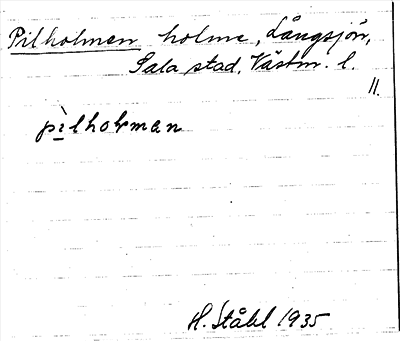 Pilholmen holme, Långsjön,
Sala stad, Västm. l.
II.
pìlholman
H. Ståhl 1935